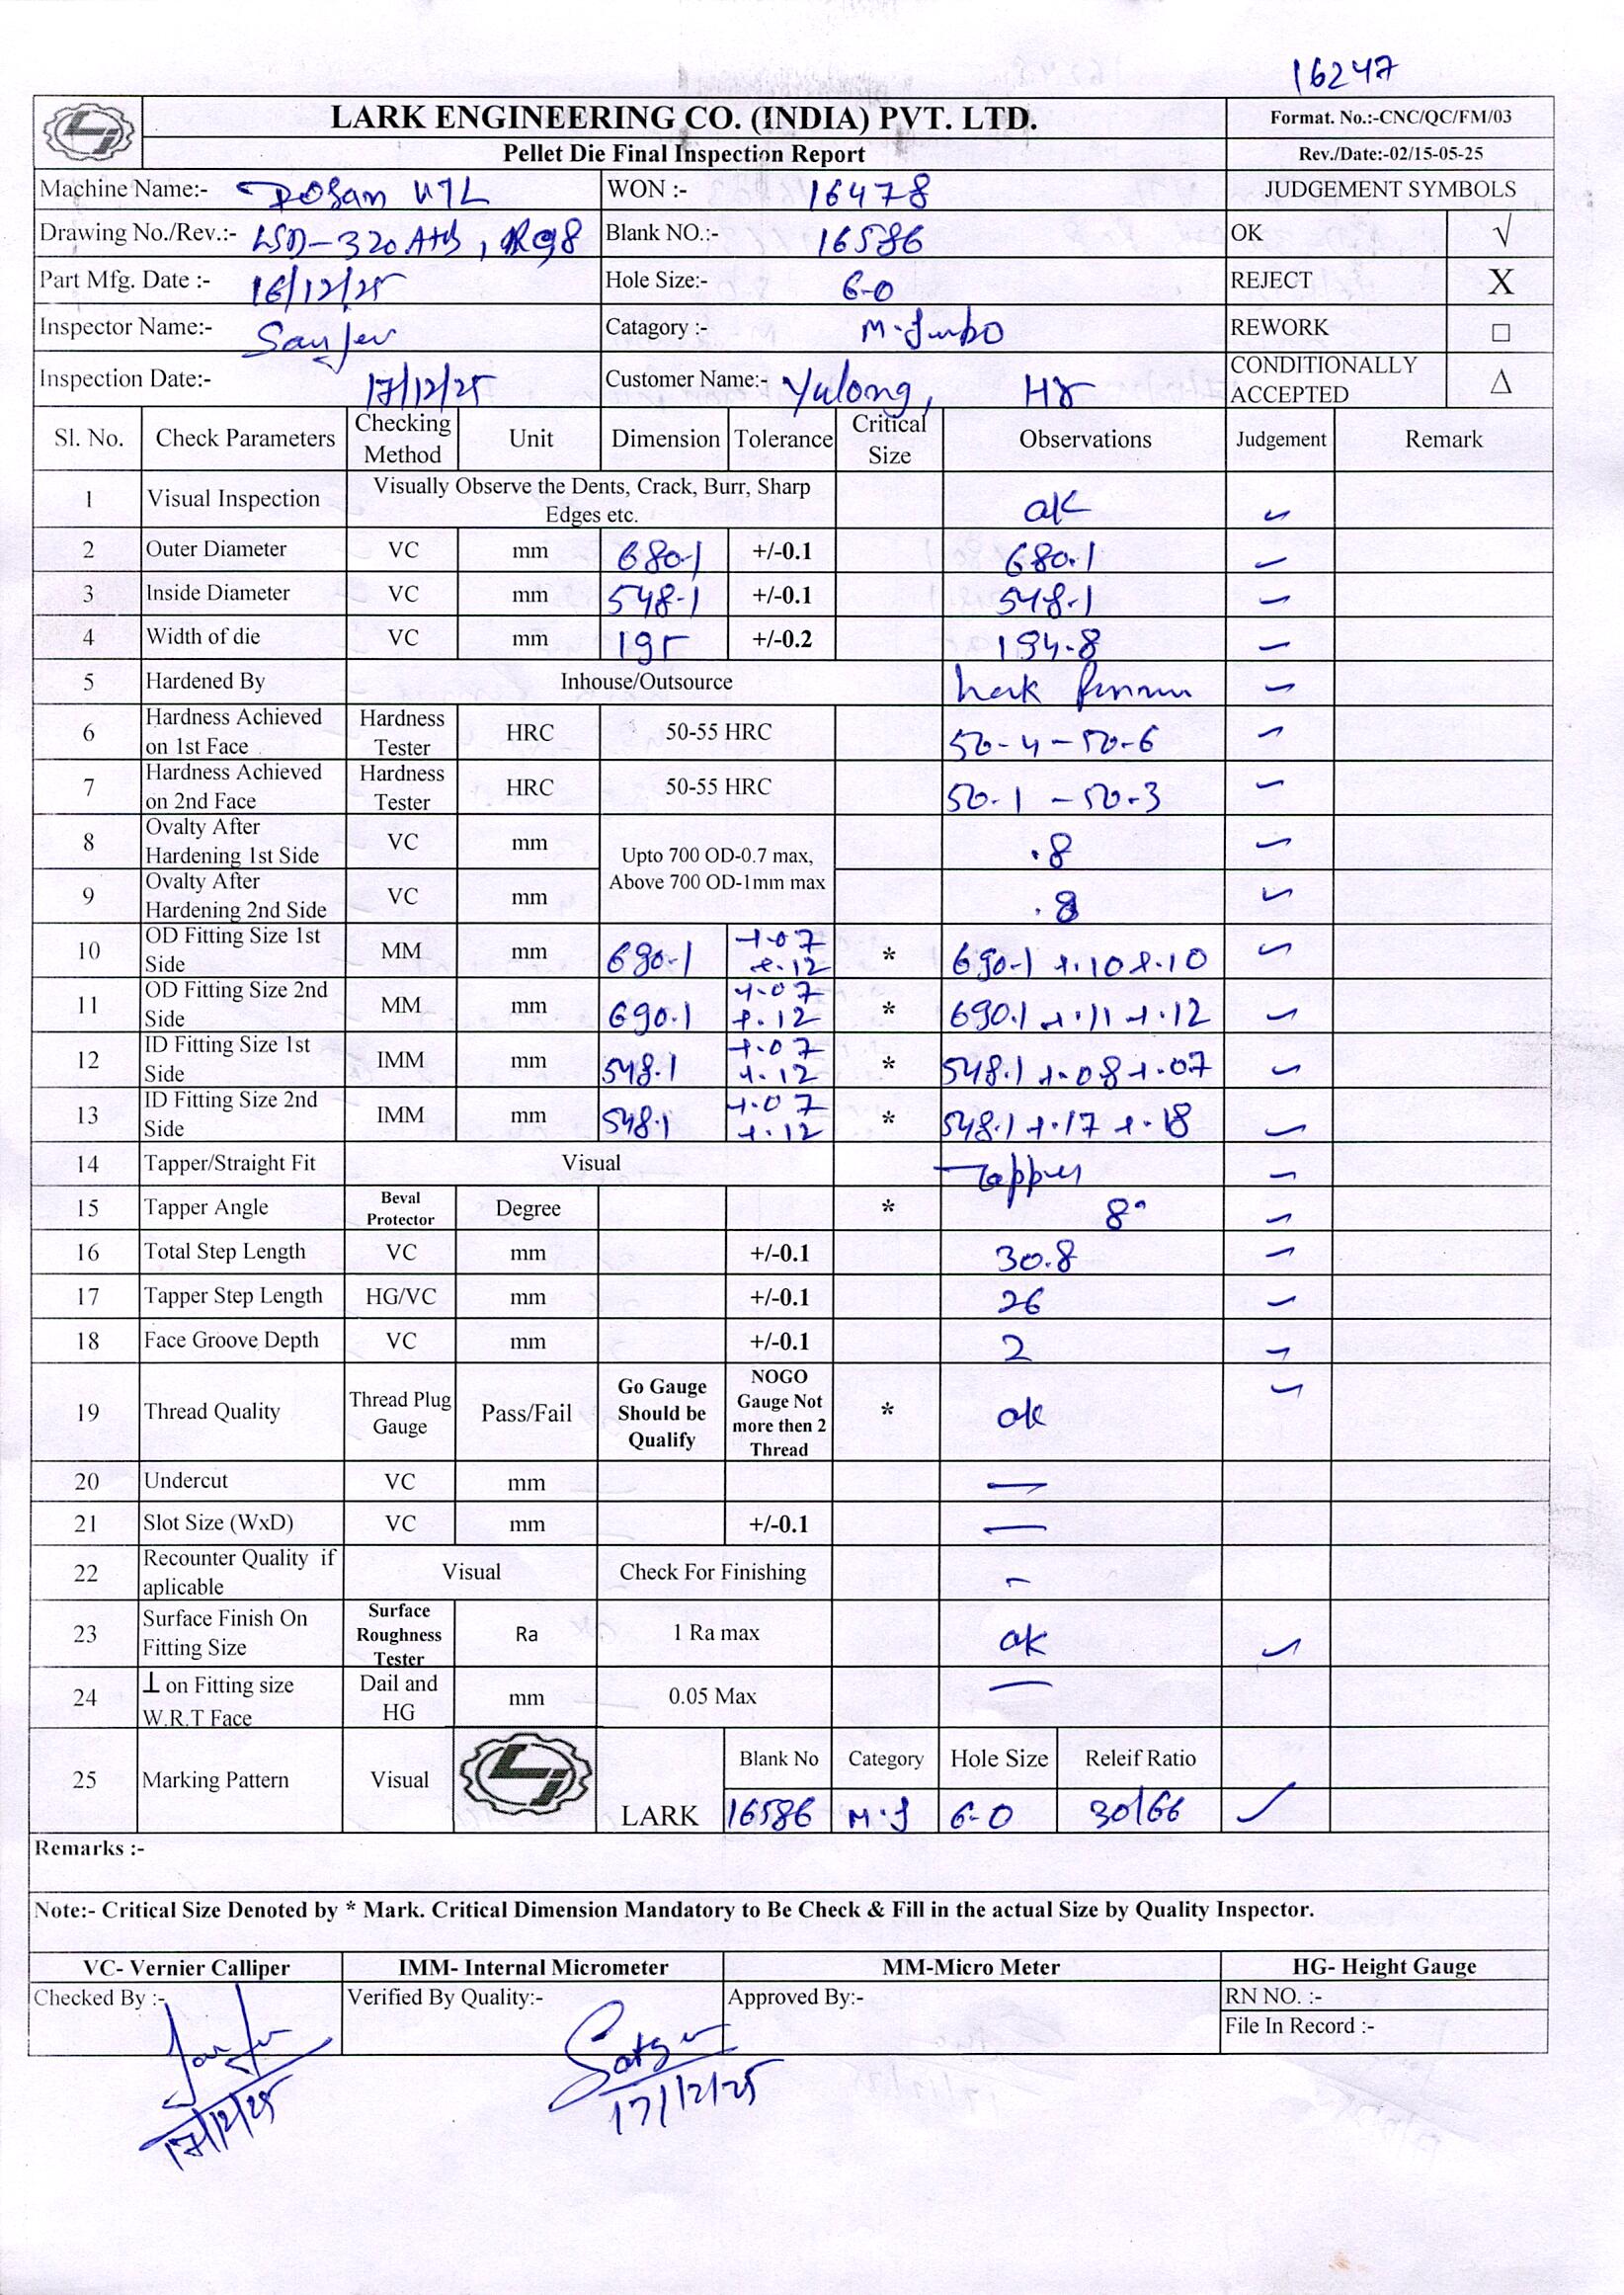 16247
LARK ENGINEERING CO. (INDIA) PVT. LTD.
Format. No.:-CNC/QC/FM/03
Pellet Die Final Inspection Report
Rev./Date:-02/15-05-25
Machine Name:-
WON :- 16478
JUDGEMENT SYMBOLS
Drawing No./Rev.:- LSD-320
Blank NO.:- 16586
OK √
Part Mfg. Date :- 16/12/25
Hole Size:- 6-0
REJECT X
Inspector Name:- Sanjev
Catagory :- M-Jumbo
REWORK □
Inspection Date:- 17/12/25
Customer Name:- Yulong, Hr
CONDITIONALLY ACCEPTED Δ
Sl. No. Check Parameters Checking Method Unit Dimension Tolerance Critical Size Observations Judgement Remark
1 Visual Inspection Visually Observe the Dents, Crack, Burr, Sharp Edges etc. ok ✓
2 Outer Diameter VC mm 680.1 +/-0.1 680.1 ✓
3 Inside Diameter VC mm 548.1 +/-0.1 548.1 ✓
4 Width of die VC mm 195 +/-0.2 194.8 ✓
5 Hardened By Inhouse/Outsource ✓
6 Hardness Achieved on 1st Face Hardness Tester HRC 50-55 HRC 50-4 - 50-6 ✓
7 Hardness Achieved on 2nd Face Hardness Tester HRC 50-55 HRC 50-1 - 50-3 ✓
8 Ovalty After Hardening 1st Side VC mm Upto 700 OD-0.7 max, Above 700 OD-1mm max .8 ✓
9 Ovalty After Hardening 2nd Side VC mm .8 ✓
10 OD Fitting Size 1st Side MM mm 690.1 +.07 +.12 * 690.1 +.10 +.10 ✓
11 OD Fitting Size 2nd Side MM mm 690.1 +.07 +.12 * 690.1 +.11 +.12 ✓
12 ID Fitting Size 1st Side IMM mm 548.1 +.07 +.12 * 548.1 +.08 +.07 ✓
13 ID Fitting Size 2nd Side IMM mm 548.1 +.07 +.12 * 548.1 +.17 +.18 ✓
14 Tapper/Straight Fit Visual Tapper ✓
15 Tapper Angle Beval Protector Degree * 8° ✓
16 Total Step Length VC mm +/-0.1 30.8 ✓
17 Tapper Step Length HG/VC mm +/-0.1 26 ✓
18 Face Groove Depth VC mm +/-0.1 2 ✓
19 Thread Quality Thread Plug Gauge Pass/Fail Go Gauge Should be Qualify NOGO Gauge Not more then 2 Thread * ok ✓
20 Undercut VC mm —
21 Slot Size (WxD) VC mm +/-0.1 —
22 Recounter Quality if aplicable Visual Check For Finishing -
23 Surface Finish On Fitting Size Surface Roughness Tester Ra 1 Ra max ok ✓
24 ⊥ on Fitting size W.R.T Face Dail and HG mm 0.05 Max —
25 Marking Pattern Visual LARK Blank No Category Hole Size Releif Ratio
16586 M.J 6-0 30/66 ✓
Remarks :-
Note:- Critical Size Denoted by * Mark. Critical Dimension Mandatory to Be Check & Fill in the actual Size by Quality Inspector.
VC- Vernier Calliper IMM- Internal Micrometer MM-Micro Meter HG- Height Gauge
Checked By :- Verified By Quality:- Approved By:- RN NO. :-
File In Record :-
Sanjev
17/12/25
17/12/25